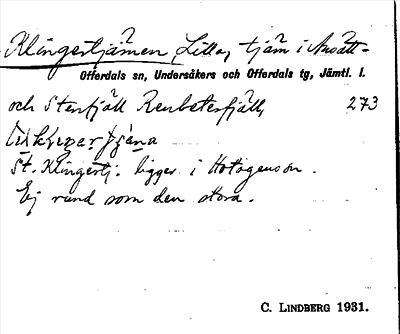 Klingertjärnen, Lilla, tjärn i Ansätt-
Offerdals sn, Undersåkers och Offerdals tg, Jämtl. l.
och Stenfjäll Renbetesfjäll, 273
St. Klingertj. ligger i Hotagens sn.
Ej rund som den stora.
C. LINDBERG 1931.